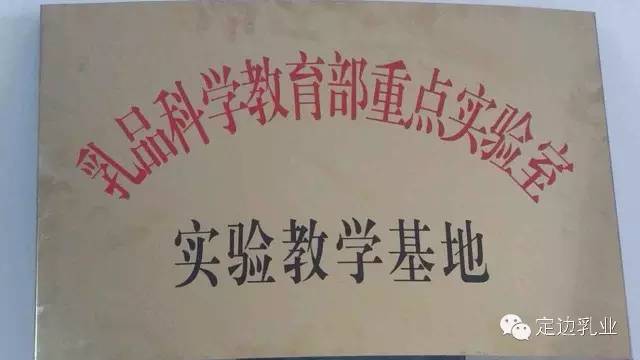 乳品科学教育部重点实验室
实验教学基地
定边乳业